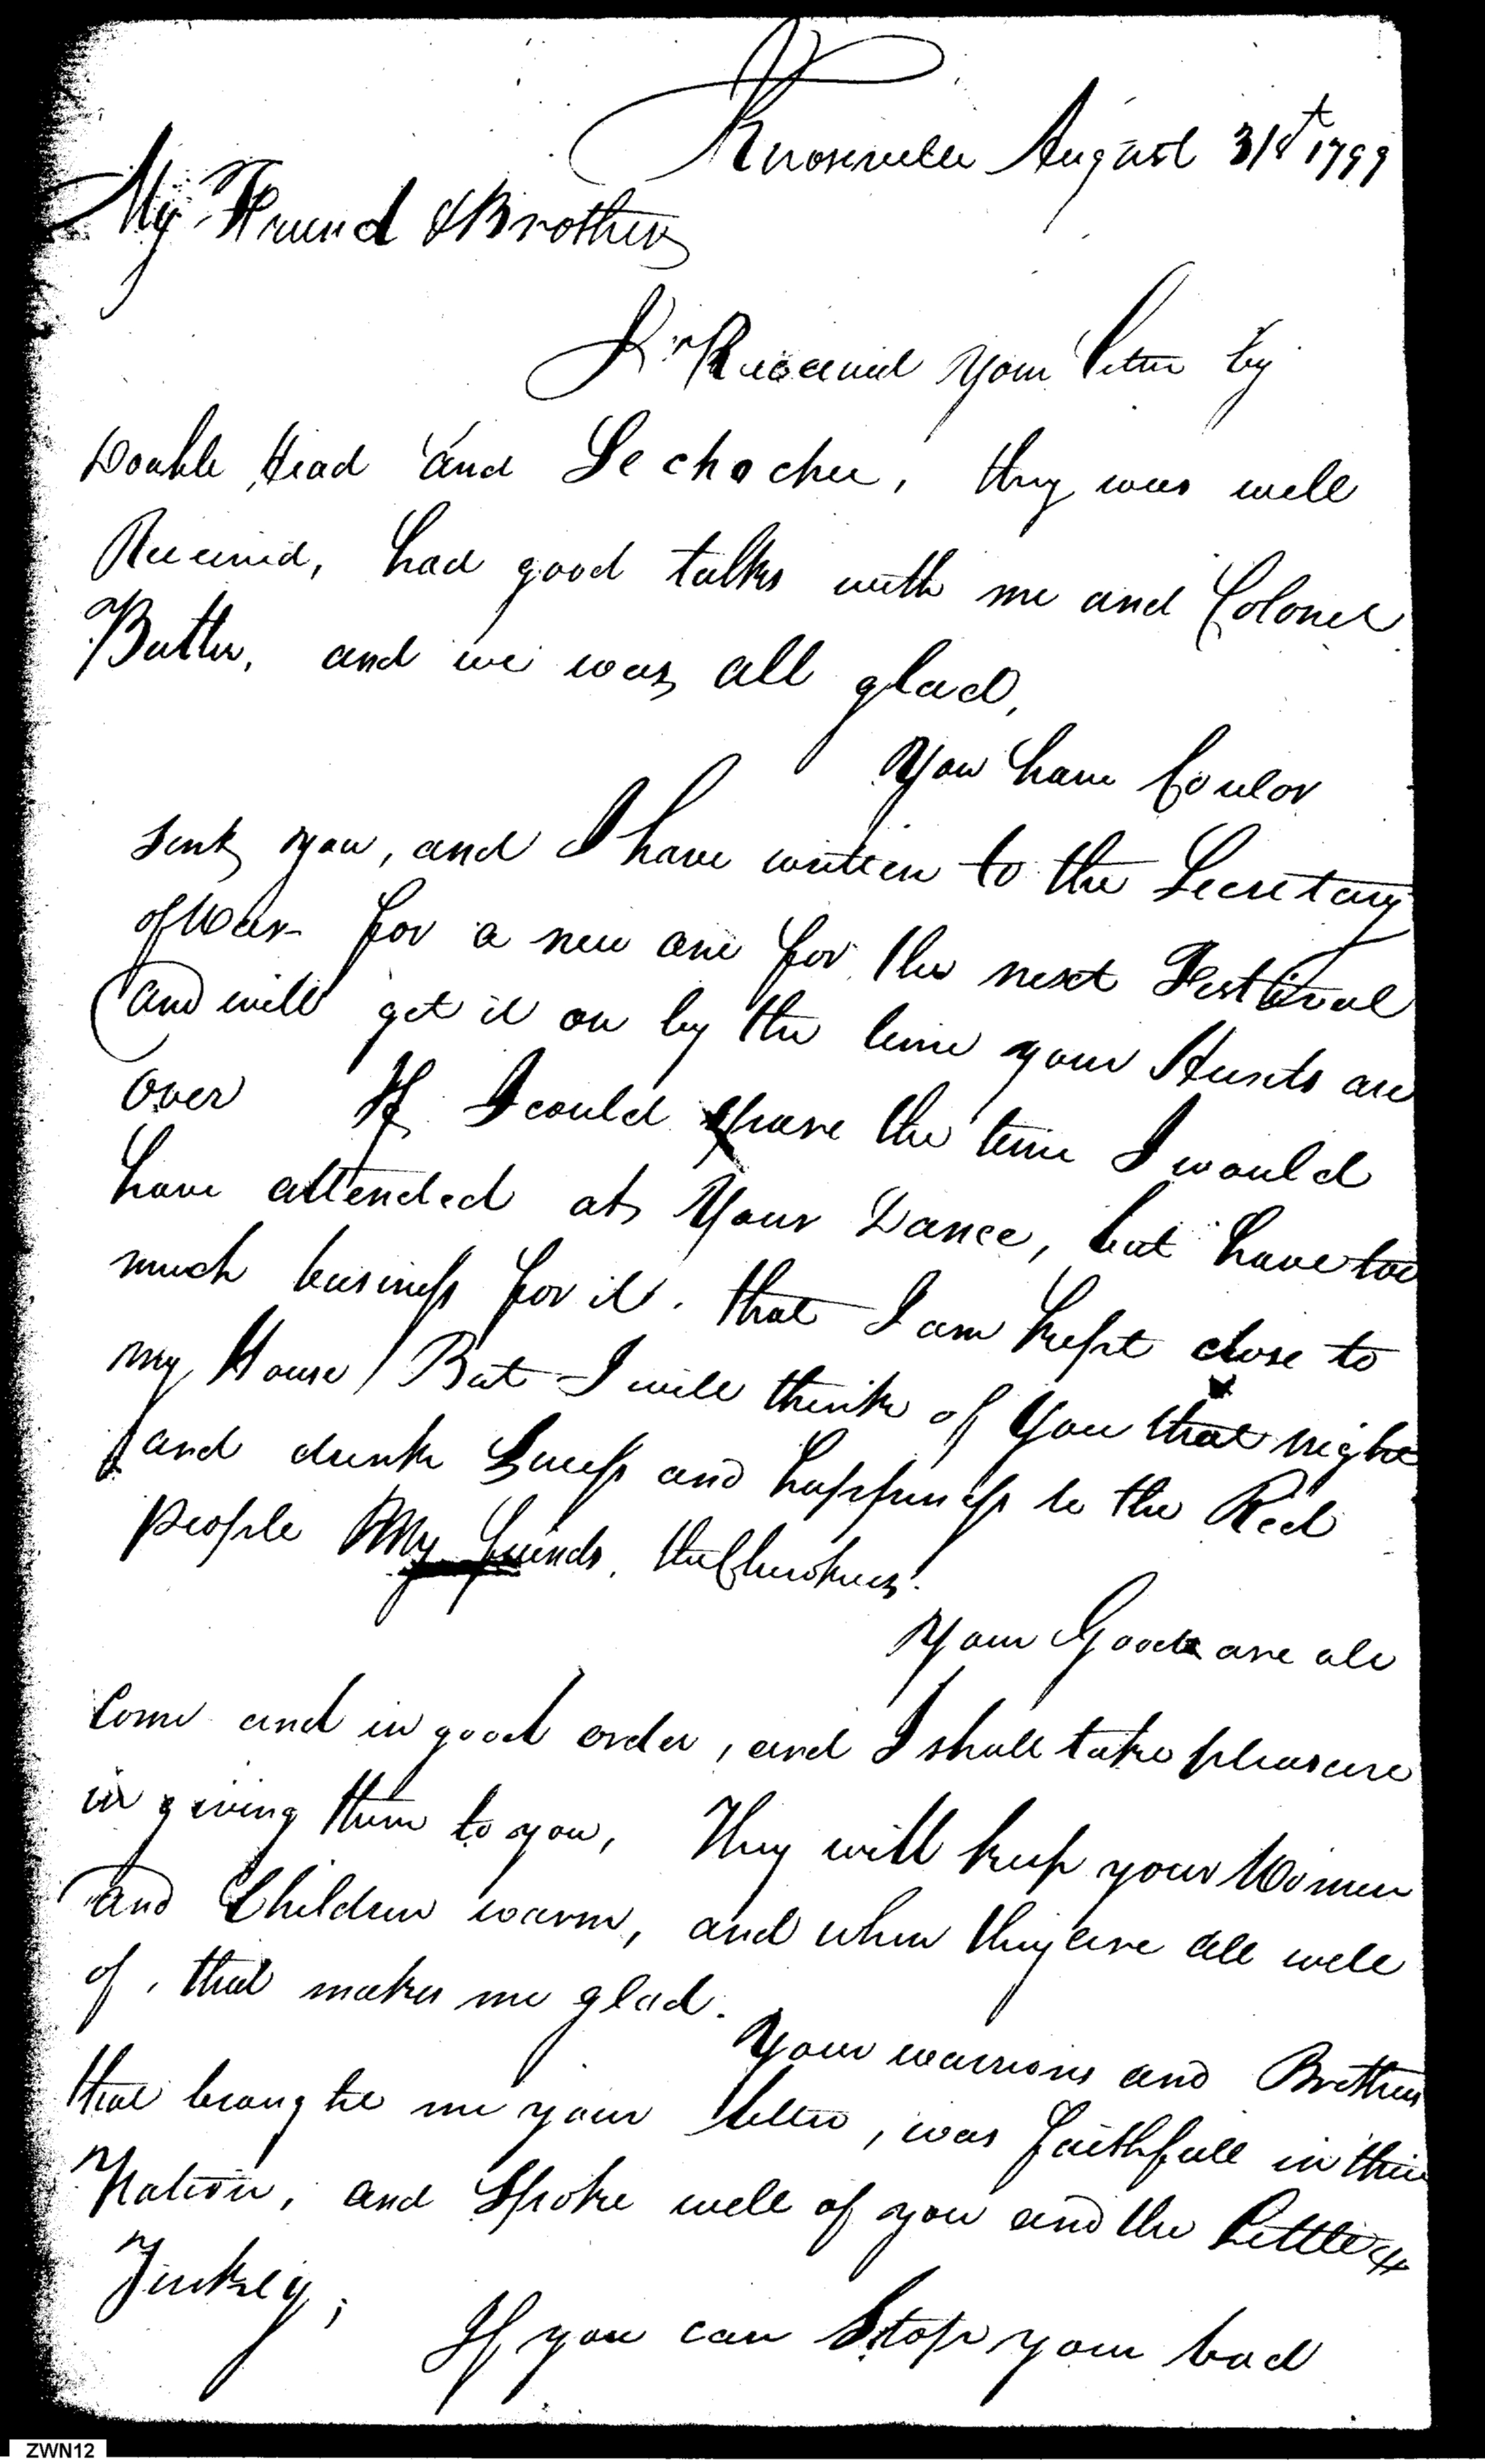 Knoxville August 31st 1799
My Friend & Brother
I Received your letter by
Double Head and Sechochee, they was well
Received, had good talks with me and Colonel
Butler, and we was all glad,
You have Coulor
sent you, and I have written to the Secretary
of War for a new one for the next Festival
and will get it on by the time your Hunts are
over If I could spare the time I would
have attended at Your Dance, but have too
much business for it. that I am kept close to
my House / But I will think of You that night
and drink Sucess and happiness to the Red
people My friends, the Cherokees.
Your Goods are all
come and in good order, and I shall take pleasure
in giving them to you, They will keep your Women
and Children warm, and when they are all well
of, that makes me glad.
Your warriors and Brothers
that brought me your letter, was faithfull in their
Nation, and Spoke well of you and the Little
Turkey;
If you can Stop your bad
ZWN12